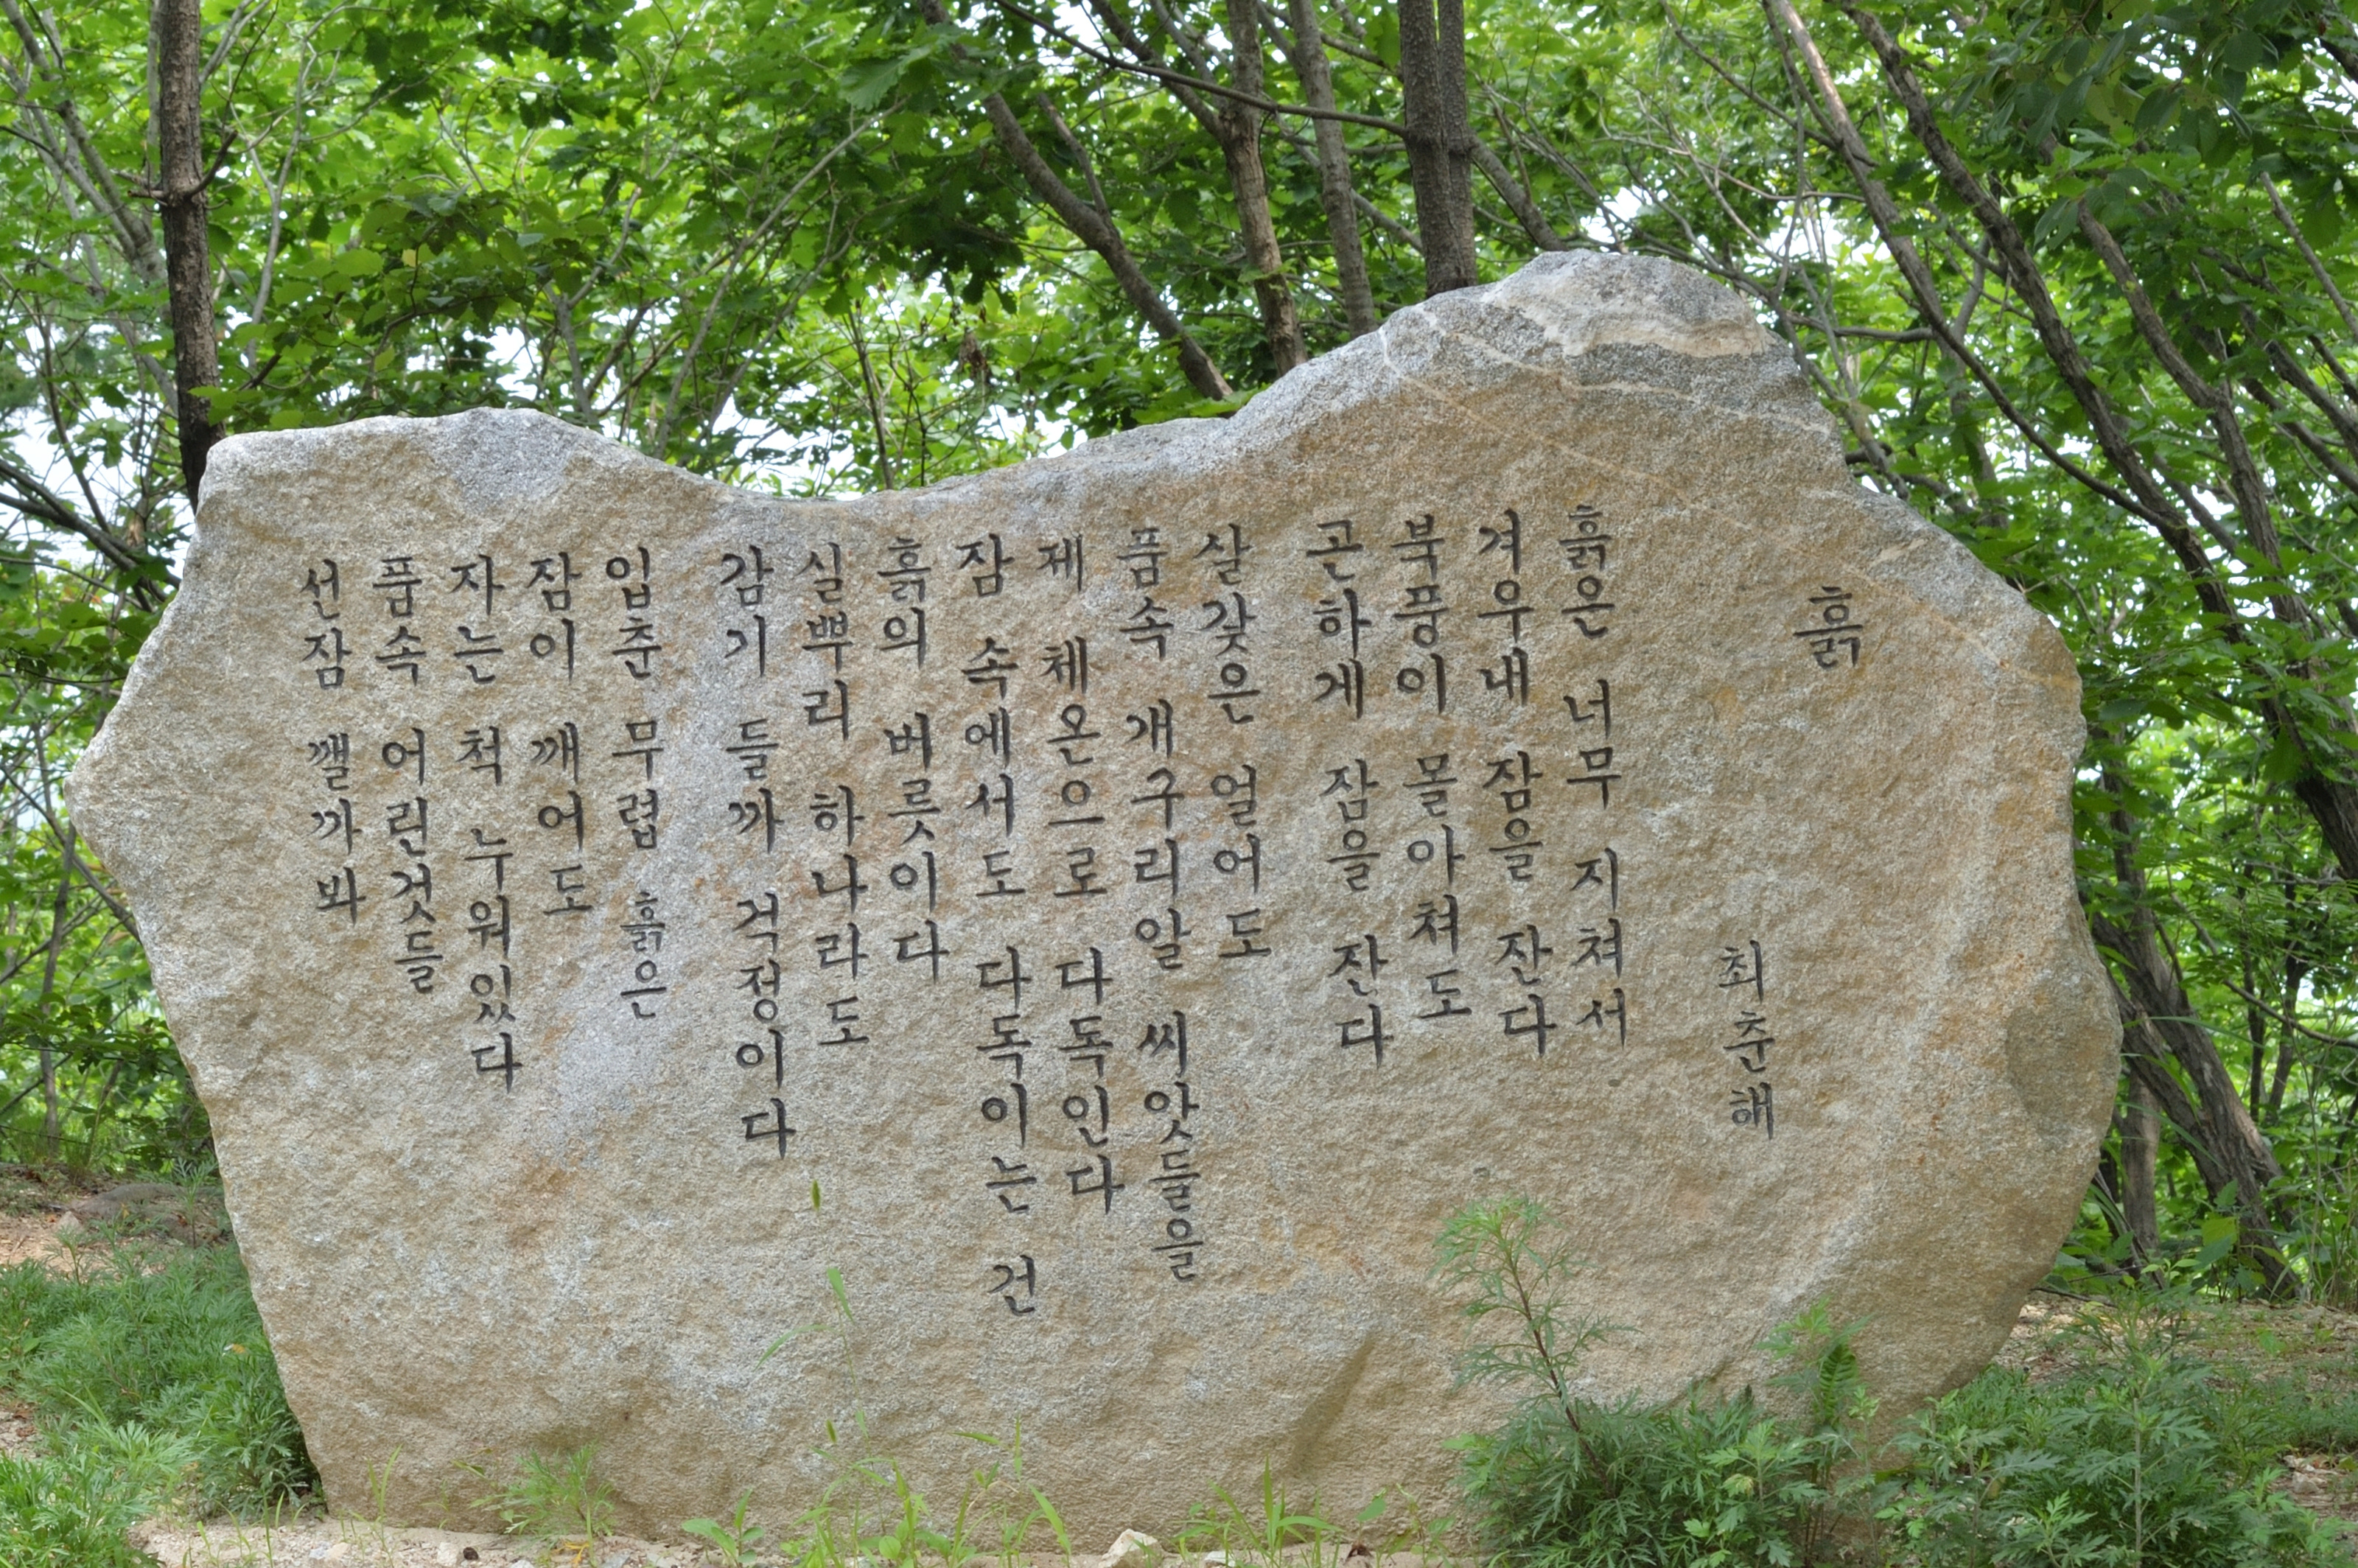 흙
최춘해
흙은 너무 지쳐서
겨우내 잠을 잔다
북풍이 몰아쳐도
곤하게 잠을 잔다
살갗은 얼어도
품속 개구리알 씨앗들을
제 체온으로 다독인다
잠 속에서도 다독이는 건
흙의 버릇이다
실뿌리 하나라도
감기 들까 걱정이다
입춘 무렵 흙은
잠이 깨어도
자는 척 누워있다
품속 어린것들
선잠 깰까 봐